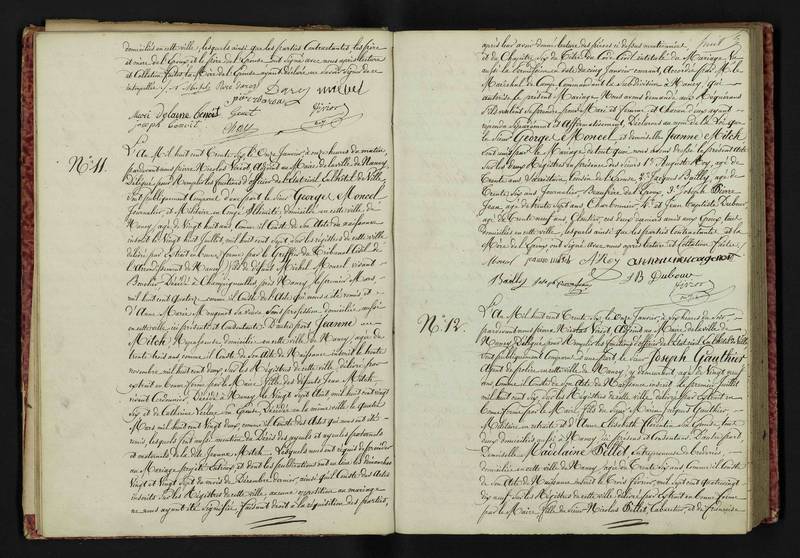 domiciliés en cette ville, lesquels ainsi que les parties Contractantes les père
et mère de l'Epoux et le père de l'Epouse ont Signé avec nous après lecture
et Collation faites, la Mère de l'Epouse ayant déclaré ne Savoir Signer de ce
interpellée
Marie Delaine Benoit
joseph
N.º 11.
L'An Mil huit cent Trente Six, le Onze Janvier, à onze heures du matin,
pardevant nous pierre Nicolas Voirot, Adjoint au Maire de la ville de Nancy,
Délégué pour Remplir les fonctions d'officier de l'Etat Civil, en l'hôtel de Ville
Sont publiquement Comparus d'une part le Sieur Georges Moncel
Journalier et Militaire en Congé Illimité, domicilié en cette ville de
Nancy, agé de Vingt huit ans, comme il Conste de Son Acte de naissance
inscrit le Vingt huit Juillet, mil huit cent Sept Sur les registres de cette ville
délivré par Extrait en bonne forme par le Greffier du Tribunal Civil de
l'Arrondissement de Nancy, fils de défunt Michel Moncel vivant
Bucher Décédé à Champigneulles près Nancy le premier Mars
mil huit cent quatorze comme il Conste de l'Acte qui nous a été remis, et
d'Anne Marie Mengenot sa Veuve Sans profession domiciliée aussi
en cette ville, ici présente et Consentante. D'autre part Jeanne
Mitch domiciliée en cette ville de Nancy, agée de
vingt trois ans, comme il Conste de Son Acte de Naissance inscrit le trente
novembre mil huit cent douze, Sur les Registres de cette ville délivré par
extrait en bonne forme par le Maire, fille des défunts Jean Mitch
vivant Cordonnier, Décédé à Nancy le Vingt Sept Août mil huit cent vingt
Six, et de Catherine Leclerc Sa Epouse, Décédée en la même ville le quatorze
Mars mil huit cent Vingt deux, comme il Conste des Actes qui nous ont été
remis, lesquels font aussi mention du Décès des ayeuls et ayeules paternels
et maternels de la dite Jeanne Mitch. Lesquels nous ont requis de procéder
au Mariage projeté Entre eux, et dont les publications ont eu lieu les dimanches
Vingt et Vingt Sept du mois de Décembre dernier, ainsi qu'il Conste des Actes
inscrits Sur les Registres de cette ville, aucune opposition au mariage
ne nous ayant été Signifiée, faisant droit à la réquisition des parties,
après leur avoir donné lecture des pièces ci dessus mentionnées
et du Chapitre Six du Titre Du Code Civil intitulé du Mariage et
aussi la permission en date du cinq Janvier courant, Accordée par M. le
Maréchal de Camp Commandant la Subdivision à Nancy, qui
autorise le présent Mariage. Nous avons demandé aux Requérants
s'ils voulaient Se prendre pour Mari et femme, et Chacun d'eux ayant
répondu Séparément et Affirmativement, Déclarons au nom de la Loi que
le Sieur Georges Moncel et Demoiselle Jeanne Mitch
sont unis par le Mariage, de tout quoi nous avons dressé le présent Acte
Sur les deux Registres en présence des Sieurs 1.º Auguste Roy, agé de
trente ans Secrétaire, Cousin de l'Epouse 2.º Jacques Bailly, agé de
Trente Six ans Journalier, Beaufrère de l'Epoux, 3.º Joseph Pierre
Jean, agé de trente Sept ans Charbonnier 4.º et Jean Baptiste Dubour
agé de Trente neuf ans Cloutier, ces deux derniers amis aux Epoux, tous
domiciliés en cette ville, lesquels ainsi que les parties Contractantes et la
Mère de l'Epoux, ont Signé avec nous après lecture et Collation faites.
Moncel jeanne mitch A Roy
Bailly JB Dubour
N.º 12.
L'An Mil huit cent Trente Six, le Onze Janvier, à Six heures du Soir,
pardevant nous pierre Nicolas Voirot, Adjoint au Maire de la ville de
Nancy, Délégué pour Remplir les fonctions d'officier de l'Etat Civil en l'hôtel de Ville
Sont publiquement Comparus d'une part le Sieur Joseph Gauthier
Agent de police en cette ville de Nancy, y demeurant, agé de Vingt neuf
ans Comme il Conste de Son Acte de Naissance inscrit le premier Juillet
mil huit cent Six, Sur les Registres de cette ville, délivré par Extrait en
bonne forme par le Maire, fils du Sieur Gauthier
Militaire en retraite, et d'Anne Elisabeth Son Epouse, tous
deux domiciliés aussi à Nancy ici présens et Consentans. D'autre part,
Demoiselle Madelaine Dillet Entrepreneuse de broderies,
domiciliée en cette ville de Nancy, agée de Trente Six ans, Comme il Conste
de Son Acte de Naissance inscrit le Trois Février, mil Sept cent quatrevingt
dix neuf Sur les Registres de cette ville délivré par Extrait en bonne forme
par le Maire, fille du Sieur Nicolas Dillet, Cabaretier, et de Françoise